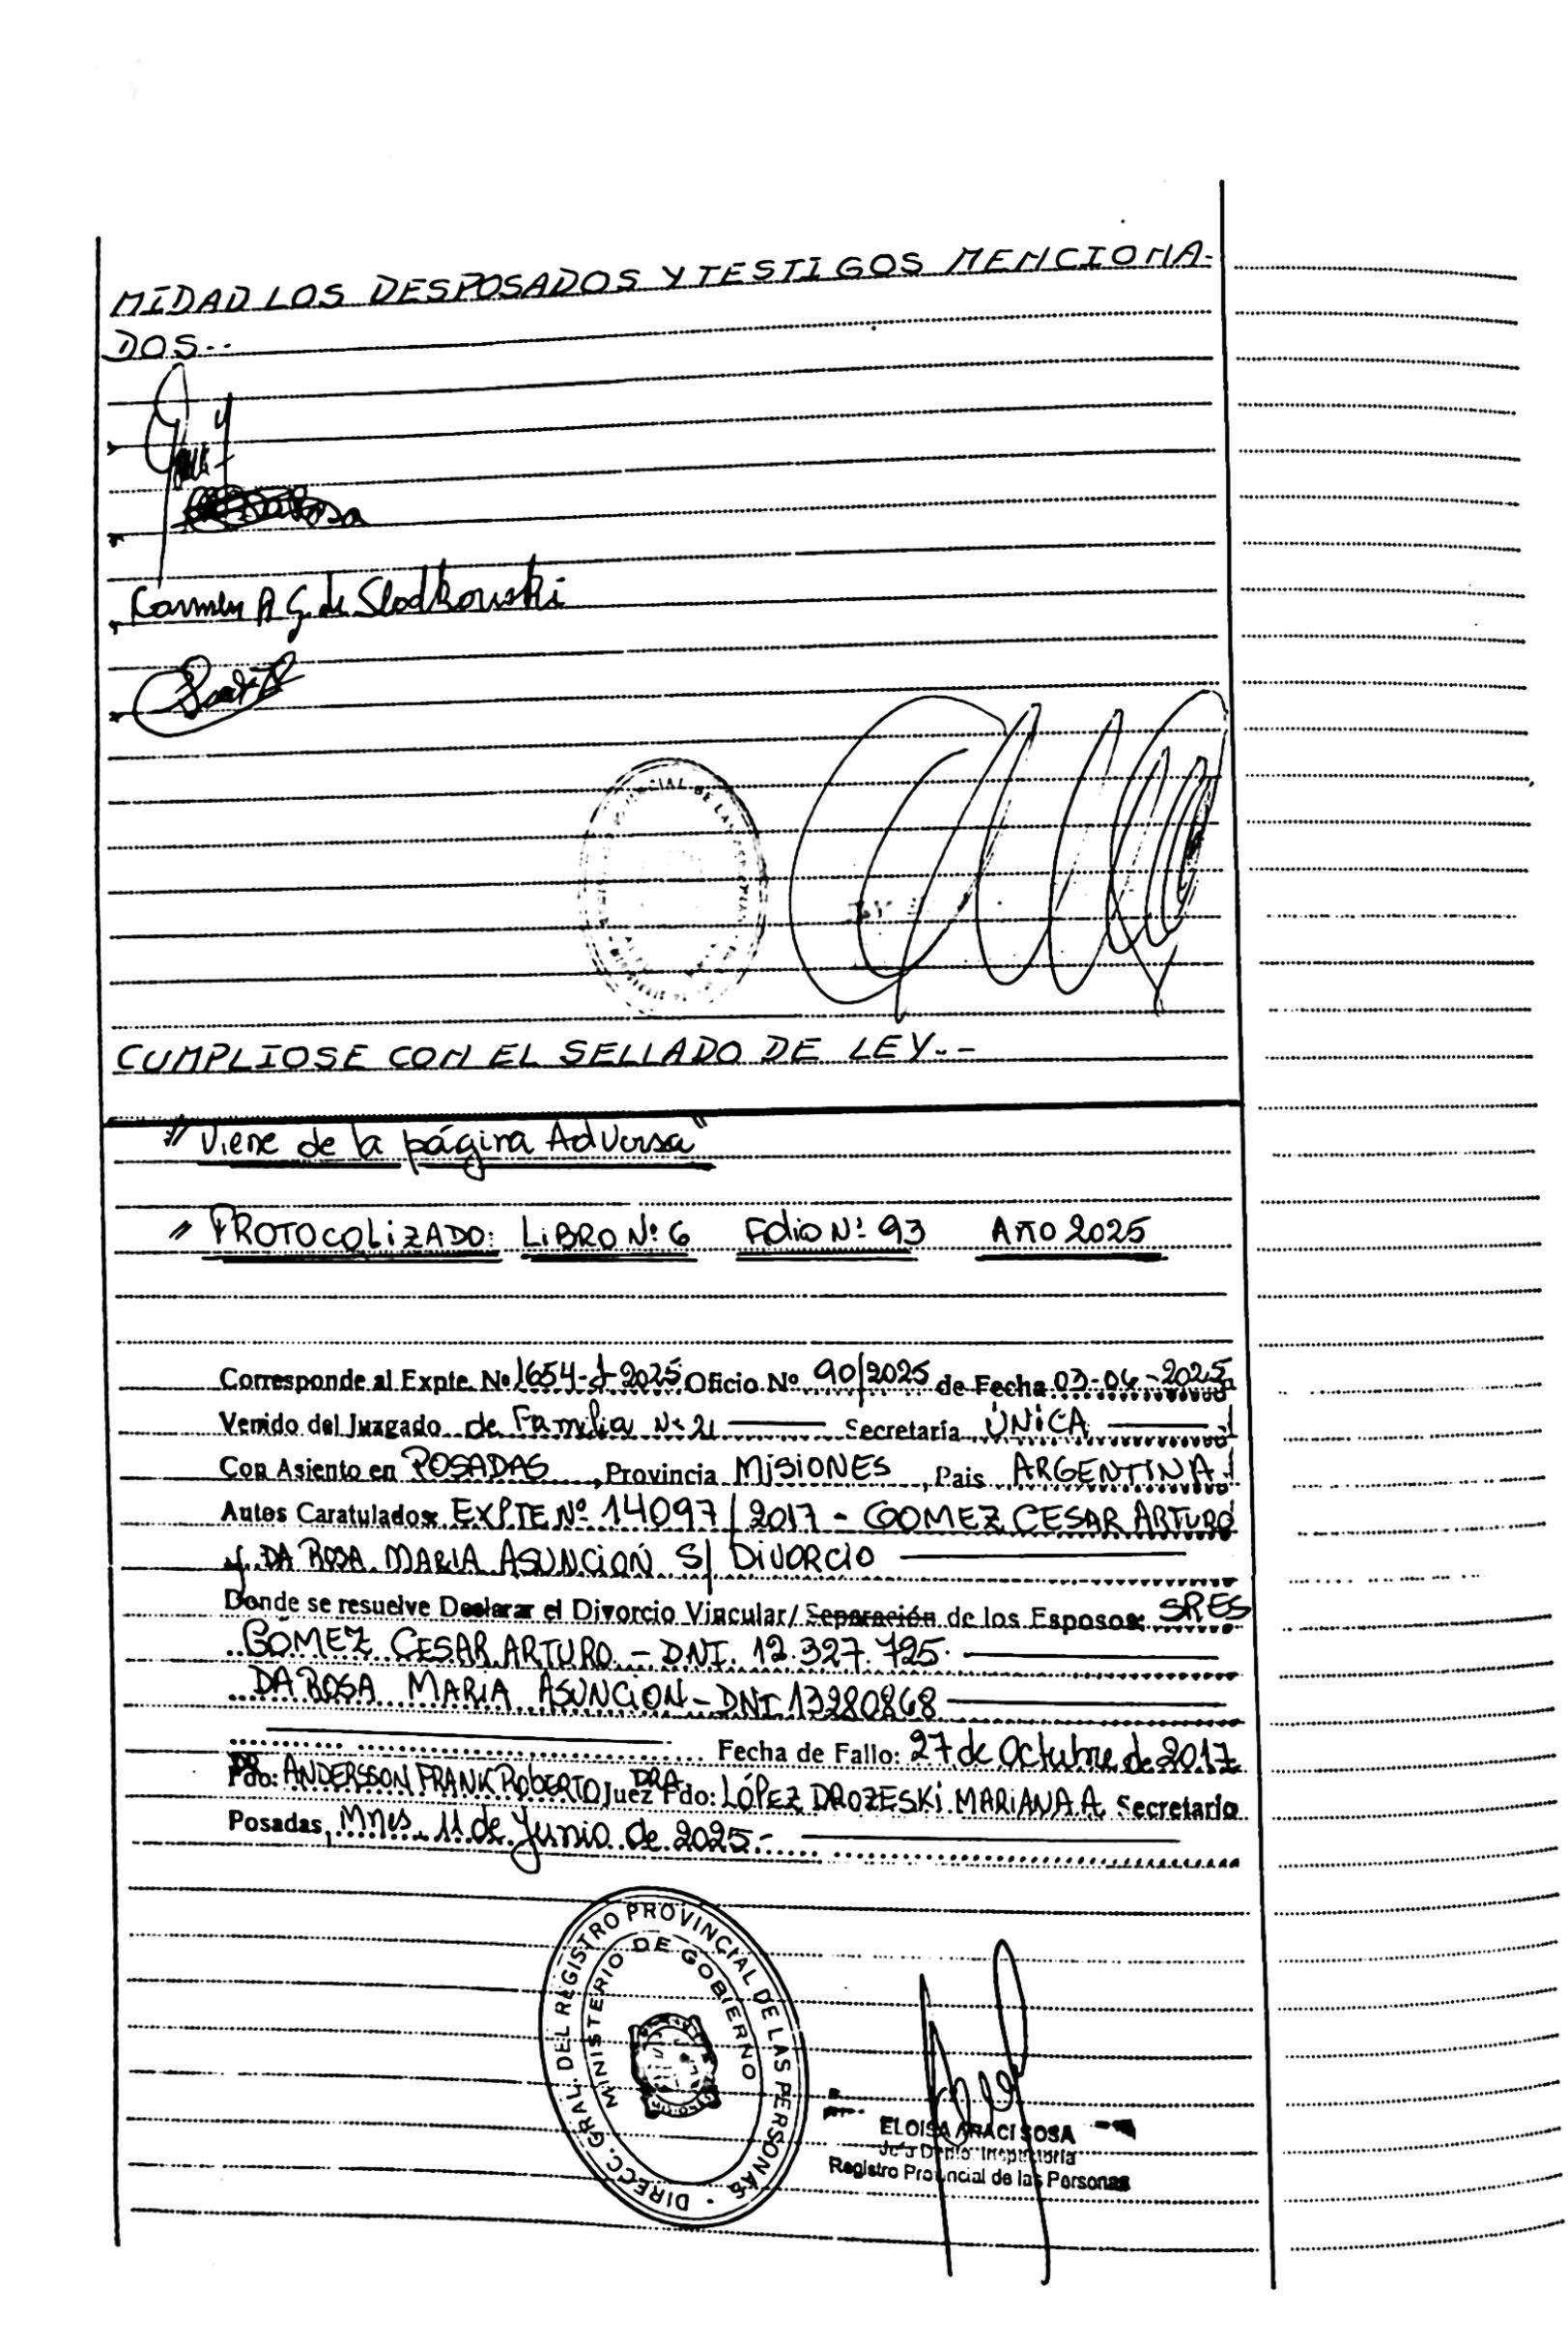 MIDAD LOS DESPOSADOS Y TESTIGOS MENCIONA-
DOS.-
Carmen A G. de Slodkowski
CUMPLIOSE CON EL SELLADO DE LEY.-
"Viene de la página Adversa"
" PROTOCOLIZADO: LIBRO Nº 6 Folio Nº 93 AÑO 2025
Corresponde al Expte. Nº 1654-J-2025 Oficio Nº 90/2025 de Fecha 03-06-2025
Venido del Juzgado de Familia Nº 21 Secretaría ÚNICA
Con Asiento en POSADAS, Provincia MISIONES, Pais ARGENTINA
Autos Caratulados: EXPTE Nº 14097/2017 - GOMEZ CESAR ARTURO
y DA ROSA MARIA ASUNCION S/ DIVORCIO
Donde se resuelve Declarar el Divorcio Vincular/Separación de los Esposos: SRES
GOMEZ CESAR ARTURO - DNI. 12.327.725.
DA ROSA MARIA ASUNCION - DNI 13280868
Fecha de Fallo: 27 de Octubre de 2017
DR Fdo: ANDERSSON FRANK ROBERTO Juez DRA Fdo: LÓPEZ DROZESKI MARIANA A. Secretario
Posadas, Mnes, 11 de Junio de 2025.-
DIRECC. GRAL. DEL REGISTRO PROVINCIAL DE LAS PERSONAS
MINISTERIO DE GOBIERNO
ELOISA ARACI SOSA
Registro Provincial de las Personas